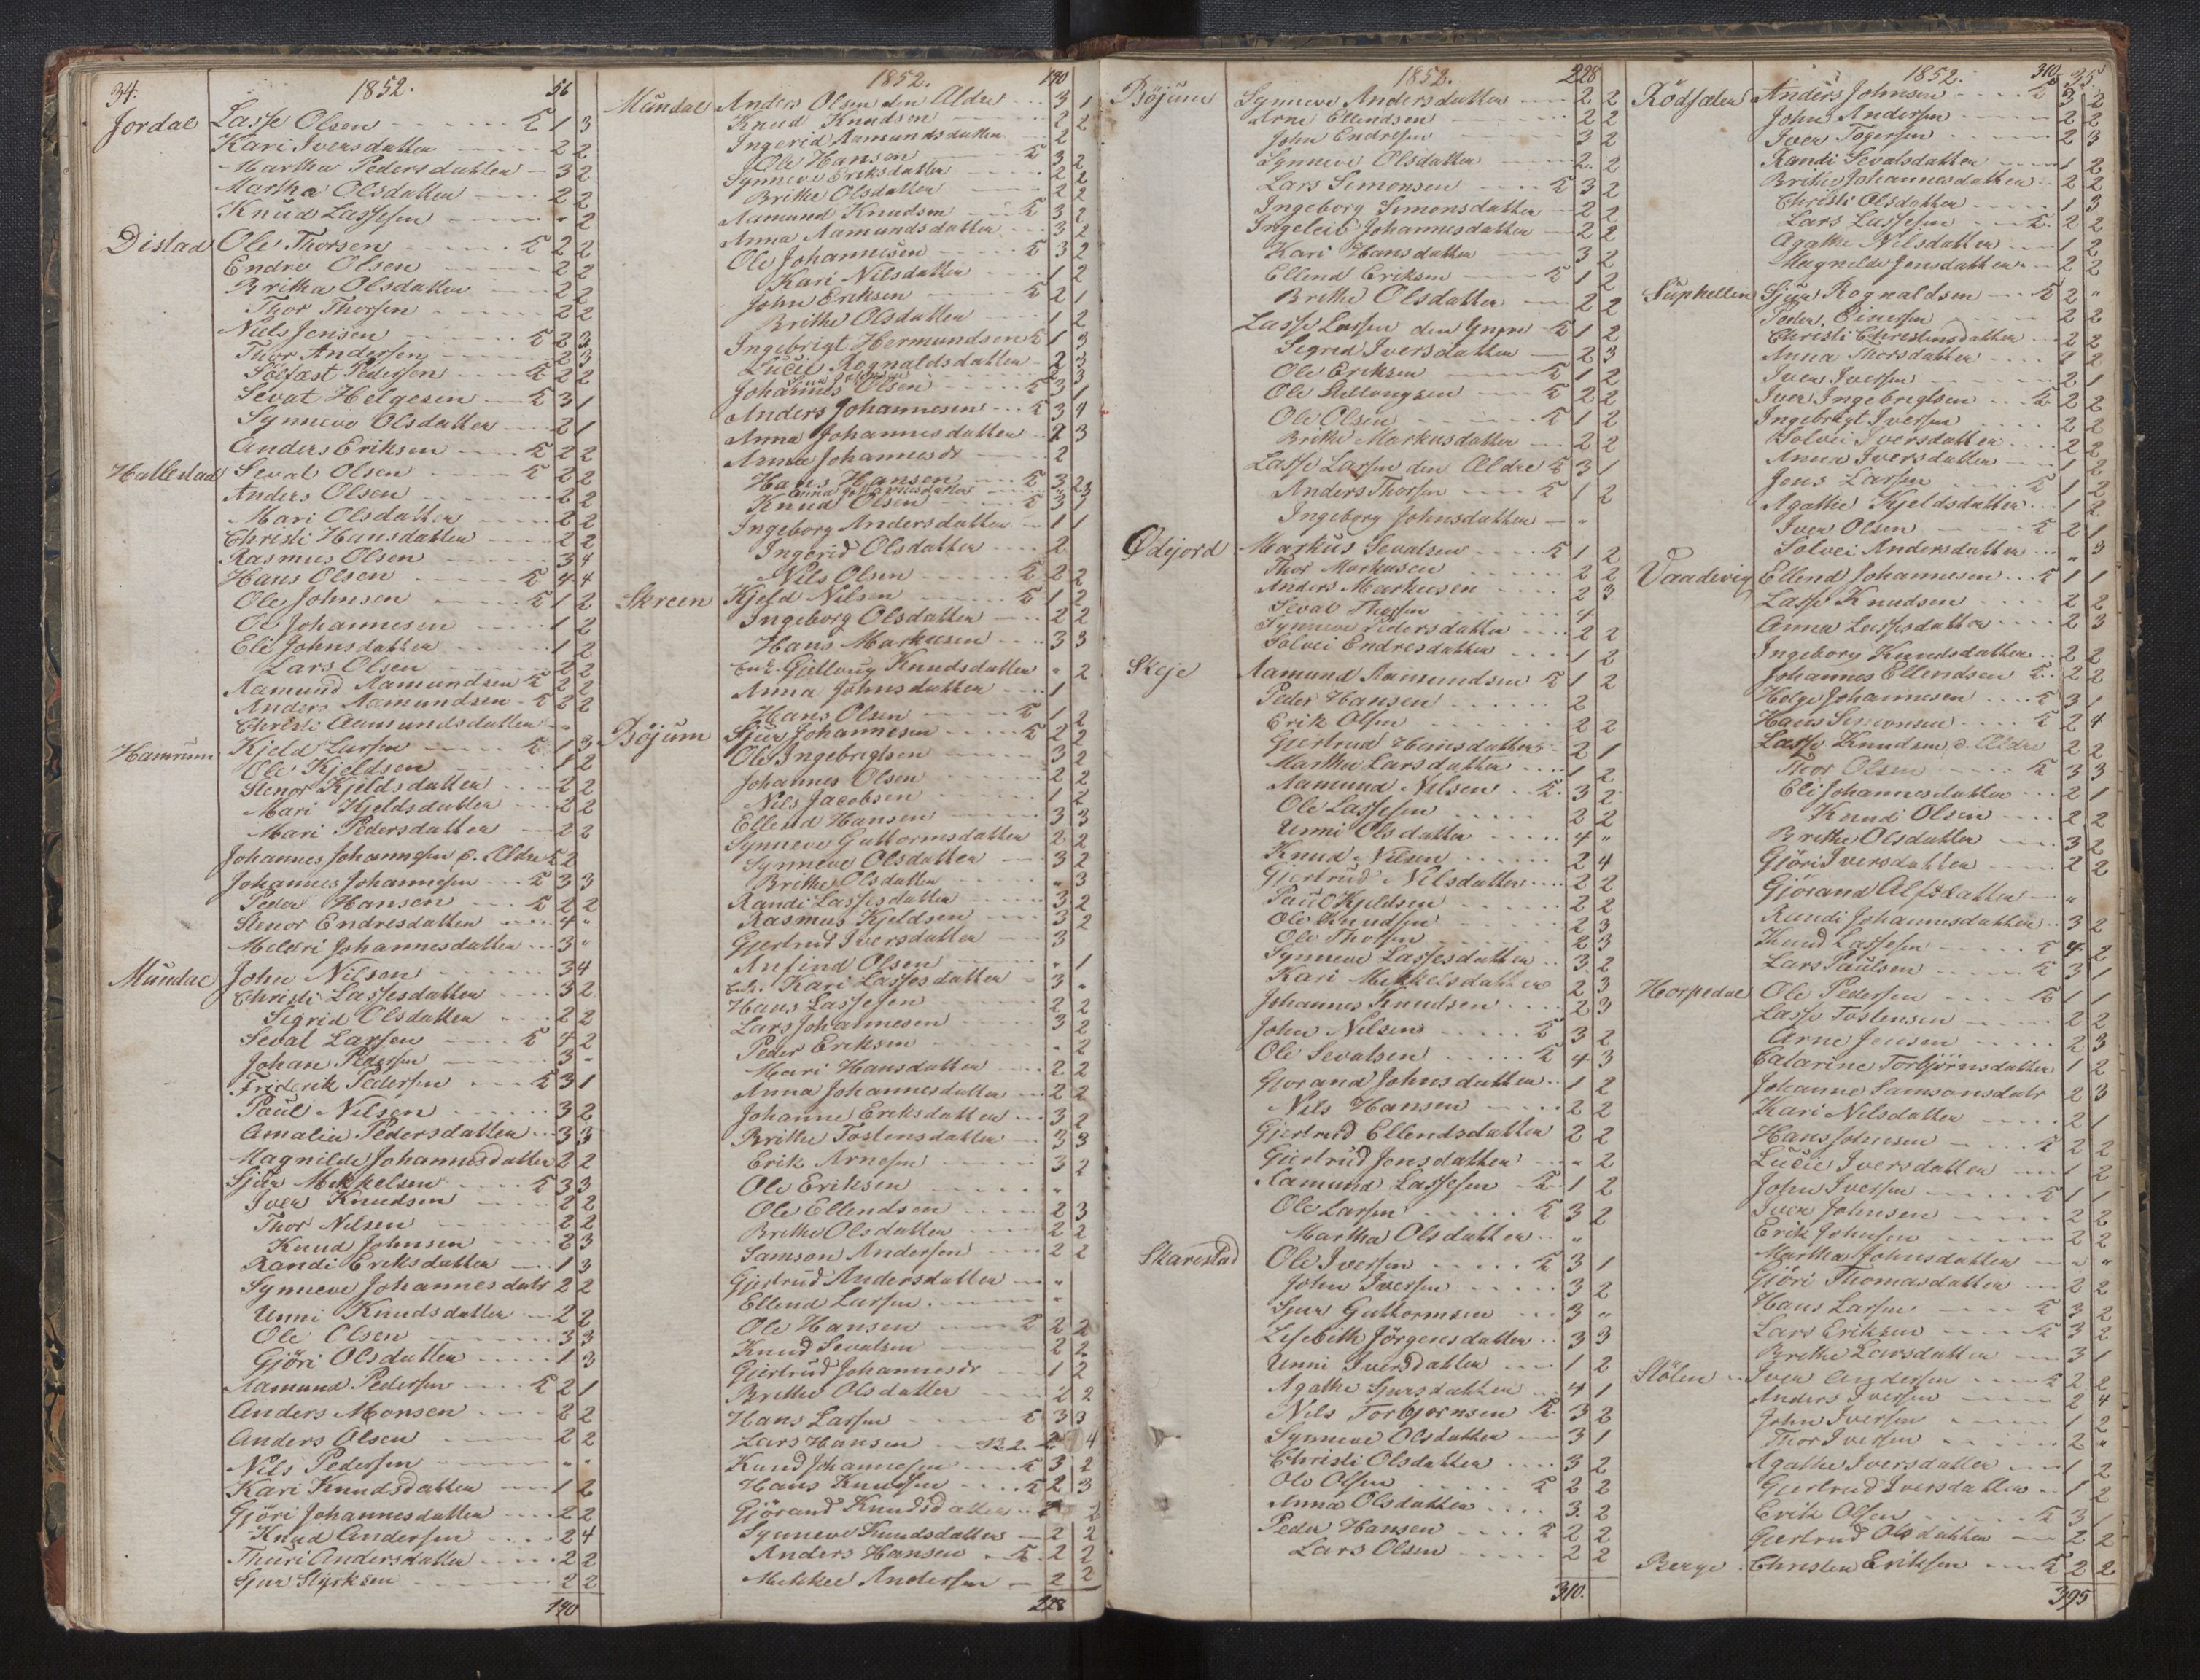 34. 1852. 56
Jordal Lasse Olsen 1 3
Kari Iversdatter 2 2
Martha Pedersdatter 3 2
Martha Olsdatter 2 2
Knud Lassesen " 2
Distad Ole Thorsen 2 2
Endre Olsen 2 2
Britha Olsdatter 2 2
Thor Thorsen 2 2
Niels Jensen 2 3
Thor Andersen 2 3
Solfast Pedersen 2 2
Sevat Helgesen 3 1
Synneve Olsdatter 2 1
Anders Eriksen 2 2
Hallestad Sevat Olsen 2 2
Anders Olsen 2 2
Mari Olsdatter 2 2
Christi Hansdatter 2 2
Rasmus Olsen 3 4
Hans Olsen 4 4
Ole Johnsen 1 2
Ol Johannesen 1 2
Eli Johnsdatter 1 2
Lars Olsen 2 2
Aamund Aamundsen 2 2
Anders Aamundsen 2 2
Christi Aamundsdatter "
Hamrum Kjeld Larsen 1 3
Ole Kjeldsen 1 2
Stenor Kjeldsdatter 2 2
Mari Kjeldsdatter 2 2
Mari Pedersdatter 2 2
Johannes Johannesen d. Ældre 2
Johannes Johannesen 3 3
Peder Hansen 2 2
Stenor Endresdatter 4 "
Mildri Johannesdatter 3 "
Mundal John Nilsen 3 4
Christi Lassesdatter 3 2
Sigrid Olsdatter 2 2
Sevat Larsen 4 2
Johan Pedersen 3 "
Friderik Pedersen 3 1
Paul Nilsen 3 2
Amalia Pedersdatter 3 3
Magnilde Johannesdatter 2 2
Sjur Mikkelsen 3 3
Iver Knudsen 2 2
Thor Nilsen 2 2
Knud Johnsen 2 3
Randi Eriksdatter 1 3
Synneve Johannesdatr 2 2
Unni Knudsdatter 2 2
Ole Olsen 3 3
Gjöri Olsdatter 1 3
Aamund Pedersen 2 1
Anders Monsen 2 2
Anders Olsen 2 2
Nils Pedersen " "
Kari Knudsdatter 1 2
Gjöri Johannesdatter 2 2
Knud Andersen 2 4
Thuri Andersdatter 2 2
Sjur Styrksen 2 2
140
1852. 140
Mundal Anders Olsen den Ælder 3 1
Knud Knudsen 2 2
Ingerid Aamundsdatter 2
Ole Hansen 3 2
Synneve Eriksdatter 2 2
Brithe Olsdatter 2 2
Aamund Knudsen 3 2
Anna Aamundsdatter 3 2
Ole Johannesen 3 2
Kari Nilsdatter 1 2
John Eriksen 2 1
Brithe Olsdatter 1 2
Ingebrigt Hermundsen 1 3
Lucie Rognaldsdatter 2 3
Johannes Olsen 3 1
Anders Johannesen 3 4
Anna Johannesdatter 2 3
Anna Johannesdr 2
Hans Hansen 3 2
Anna Johannesdatter
Knud Olsen 3 1
Ingeborg Andersdatter 1 1
Ingerid Olsdatter 2
Nils Olsen 2 2
Skreen Kjeld Nilsen 1 2
Ingeborg Olsdatter 2 2
Hans Markusen 3 3
Enk. Gjelloug Knudsdatter " 2
Anna Johnsdatter 1
Hans Olsen 1 2
Böjum Sjur Johannesen 2 2
Ole Ingebrigtsen 3 2
Johannes Olsen 2 2
Nils Jacobsen 1 2
Ellend Hansen 3 3
Synneve Guttormsdatter 2 2
Synneve Olsdatter 3 2
Brithe Olsdatter " 3
Randi Lassesdatter 3 2
Rasmus Kjeldsen 3 2
Gjertrud Iversdatter 3
Anfind Olsen " 1
Enk. Kari Lassesdatter 3 "
Hans Lassesen 2 2
Lars Johannesen 3 2
Peder Eriksen " 2
Mari Hansdatter 2 2
Anna Johannesdatter 2 2
Johanne Eriksdatter 3 2
Brithe Tostensdatter 3 3
Erik Arnesen 3 2
Ole Eriksen "
Ole Ellendsen 2 3
Brithe Olsdatter 2 2
Samson Andersen 2 2
Gjertrud Andersdatter "
Ellend Larsen "
Ole Hansen 2 2
Knud Sevatsen 2 2
Gjertrud Johannesdr 1 2
Brithe Olsdatter 2 2
Hans Larsen 3 3
Lars Hansen 2 4
Knud Johannesen 3 2
Hans Knudsen 2 3
Gjörand Knudsdatter 2
Synneve Knudsdatter 2 2
Anders Hansen 2 2
Mikkel Andersen 2 2
228
1852. 228
Böjum Synneve Andersdatter 2 2
Arne Ellendsen 2 2
John Endresen 3 2
Synneve Olsdatter 2 2
Lars Simonsen 3 2
Ingeborg Simonsdatter 2 2
Ingeleid Johannesdatter 2 2
Kari Hansdatter 3 2
Ellend Eriksen 1 2
Brithe Olsdatter 2 2
Lasse Larsen den Yngre 1 2
Sigred Iversdatter 2 3
Ole Eriksen 1 2
Ole Stellougsen 2 2
Ole Olsen 1 2
Brithe Markusdatter 2 2
Lasse Larsen den Ældre 3 1
Anders Thorsen 1 2
Ingeborg Johnsdatter "
Ödejord Markus Sevatsen 1 2
Thor Markusen 2 2
Anders Markusen 2 3
Sevat Thorsen 4
Synneve Pedersdatter 2 2
Solvei Endresdatter 1 2
Skeje Aamund Aamundsen 1 2
Peder Hansen 2
Erik Olsen 2 2
Gjertrud Hansdatter 2 1
Martha Larsdatter 1 2
Aamund Nilsen 3 2
Ole Lassesen 2 2
Unni Olsdatter 4 "
Knud Nilsen 2 4
Gjertrud Nilsdatter 2 2
Paul Kjeldsen 2 2
Ole Knudsen 2 3
Ole Thorsen 2 3
Synneve Lassesdatter 3 2
Kari Mikkelsdatter 2 3
Johannes Knudsen 2 3
John Nilsen 3 2
Ole Sevatsen 4 3
Gjorand Johnsdatter 1 2
Nils Hansen 2 2
Gjertrud Ellendsdatter 2 2
Gjertrud Jonsdatter " 2
Aamund Lassesen 1 2
Ole Larsen 3 2
Martha Olsdatter "
Skarestad Ole Iversen 3 1
John Iversen 3 2
Sjur Guttormsen 3 "
Lisebith Jörgensdatter 3 3
Unni Iversdatter 1 2
Agathe Sjursdatter 4 1
Nils Torbjornsen 3 2
Synneve Olsdatter 3 1
Christi Olsdatter 3 2
Ole Olsen 2 2
Anna Olsdatter 3 2
Peder Hansen 2 2
Lars Olsen 2 2
310.
1852. 310 35.
Rödsæter Anders Johnsen 3 2
John Andersen 2 2
Iver Togersen 2 3
Randi Sevatsdatter 1 2
Brithe Johannesdatter 2 2
Christi Olsdatter 1 3
Lars Lassesen 2 2
Agathe Nilsdatter 1 2
Magnilde Jensdatter 2 2
Suphellen Sjur Rognaldsen 2 "
Peder Einersen 2 2
Christi Christensdatter 2 2
Anna Thorsdatter 2 2
Iver Iversen 2 1
Iver Ingebregtsen 2 2
Ingebregt Iversen 2 2
Solvei Iversdatter 2 2
Anna Iversdatter 1 2
Jens Larsen 1 2
Agathe Kjeldsdatter 1 2
Iver Olsen 2 1
Solvei Andersdatter " 3
Vaadevig Ellend Johannesen 1 1
Lasse Knudsen 2 2
Anna Lassesdatter 2 3
Ingeborg Knudsdatter 2 2
Johannes Ellendsen 2 2
Helge Johannesen 3 1
Hans Simonsen 2 4
Lasse Knudsen d. Ældre 2 2
Thor Olsen 3 3
Eli Johannesdatter 2 1
Knud Olsen 2 2
Brithe Olsdatter 3 2
Gjöri Iversdatter 2 2
Gjörand Alfsdatter "
Randi Johannesdatter 3 2
Knud Lassesen 4 2
Lars Paulsen 3 1
Horpedal Ole Pedersen 1 1
Lasse Tostensen 2 2
Arne Jensen 2 3
Catarine Torbjörnsdatter 1 2
Johanne Samsonsdatr 2 3
Kari Nilsdatter 2 1
Hans Johnsen 2 2
Lucie Iversdatter 1 2
John Iversen 1 1
Iver Johnsen 2 2
Erik Johnsen 2 2
Martha Johnsdatter " "
Gjöri Thomasdatter 2 2
Hans Larsen 3 2
Lars Eriksen 3 2
Brithe Larsdatter 3 1
Stölen Iver Andersen 2 2
Anders Iversen 2 4
John Iversen 1 2
Thor Iversen 2 "
Agathe Iversdatter 1 2
Gjertrud Iversdatter 1 2
Erik Olsen 3 1
Gjertrud Olsdatter 2 2
Berge Christen Eriksen 2 2
395